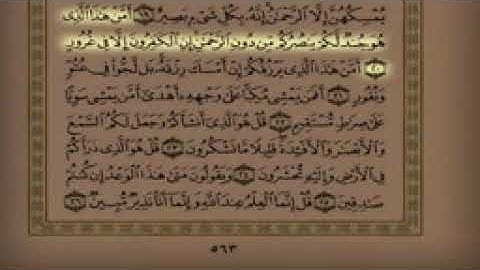 يُمْسِكُهُنَّ إِلَّا ٱلرَّحْمَٰنُ إِنَّهُۥ بِكُلِّ شَىْءٍۭ بَصِيرٌ ﴿١٩﴾ أَمَّنْ هَٰذَا ٱلَّذِى
هُوَ جُندٌ لَّكُمْ يَنصُرُكُم مِّن دُونِ ٱلرَّحْمَٰنِ إِنِ ٱلْكَٰفِرُونَ إِلَّا فِى غُرُورٍ
﴿٢٠﴾ أَمَّنْ هَٰذَا ٱلَّذِى يَرْزُقُكُمْ إِنْ أَمْسَكَ رِزْقَهُۥ بَل لَّجُّوا۟ فِى عُتُوٍّ
وَنُفُورٍ ﴿٢١﴾ أَفَمَن يَمْشِى مُكِبًّا عَلَىٰ وَجْهِهِۦٓ أَهْدَىٰٓ أَمَّن يَمْشِى سَوِيًّا
عَلَىٰ صِرَٰطٍ مُّسْتَقِيمٍ ﴿٢٢﴾ قُلْ هُوَ ٱلَّذِىٓ أَنشَأَكُمْ وَجَعَلَ لَكُمُ ٱلسَّمْعَ
وَٱلْأَبْصَٰرَ وَٱلْأَفْـِٔدَةَ قَلِيلًا مَّا تَشْكُرُونَ ﴿٢٣﴾ قُلْ هُوَ ٱلَّذِى ذَرَأَكُمْ
فِى ٱلْأَرْضِ وَإِلَيْهِ تُحْشَرُونَ ﴿٢٤﴾ وَيَقُولُونَ مَتَىٰ هَٰذَا ٱلْوَعْدُ إِن كُنتُمْ
صَٰدِقِينَ ﴿٢٥﴾ قُلْ إِنَّمَا ٱلْعِلْمُ عِندَ ٱللَّهِ وَإِنَّمَآ أَنَا۠ نَذِيرٌ مُّبِينٌ ﴿٢٦﴾
٥٦٣